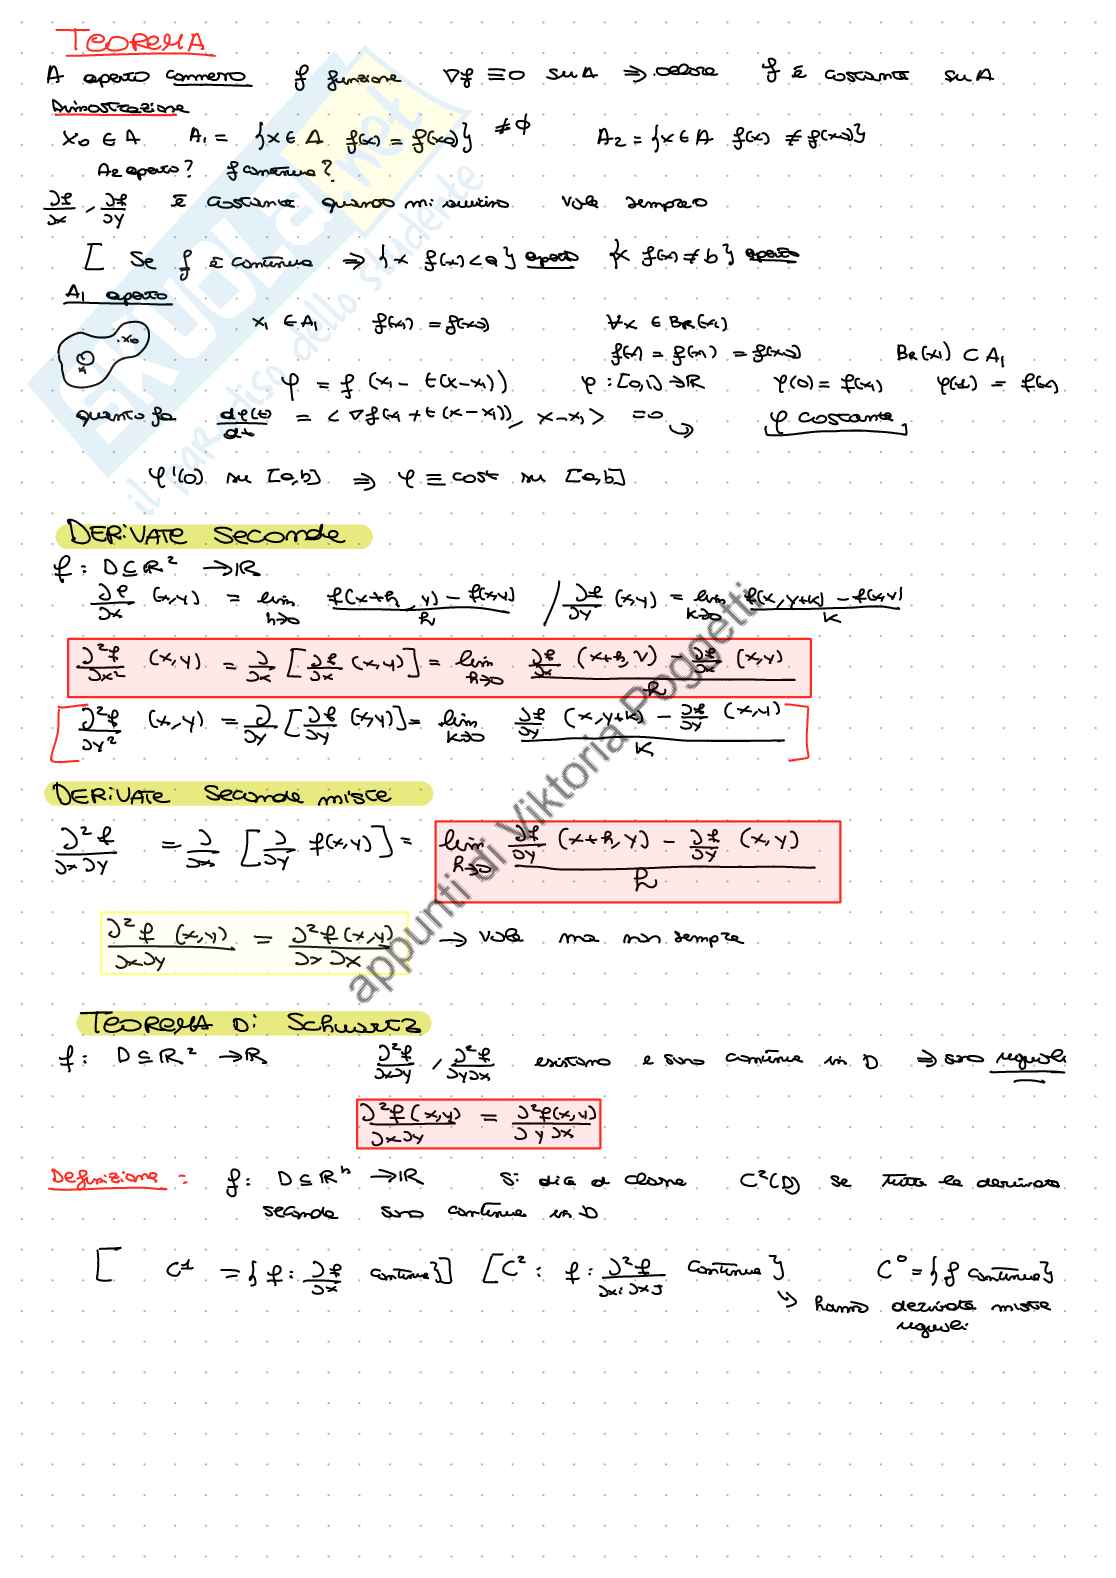 TEOREMA
A aperto connesso f funzione ∇f ≡ 0 su A ⇒ allora f è costante su A
Dimostrazione
x₀ ∈ A A₁ = {x ∈ A f(x) = f(x₀)} ≠ ∅ A₂ = {x ∈ A f(x) ≠ f(x₀)}
A₂ aperto? f continua?
∂f/∂x , ∂f/∂y è costante quando mi vale sempre
[ Se f è continua ⇒ {x f(x) < a} aperto {x f(x) ≠ b} aperto
A₁ aperto
x₁ ∈ A₁ f(x₁) = f(x₀) ∀x ∈ BR(x₁)
x₀ x₁ f(x) = f(x₁) = f(x₀) BR(x₁) ⊂ A₁
φ = f (x₁ - t(x - x₁)) φ : [0,1] → ℝ φ(0) = f(x₁) φ(1) = f(x)
quanto fa dφ(t)/dt = < ∇f(x₁ + t(x - x₁)), x - x₁ > = 0 ↪ φ costante
φ'(0) su [a,b] ⇒ φ ≡ cost su [a,b]
DERIVATE SECONDE
f : D ⊆ ℝ² → ℝ
∂f/∂x (x,y) = lim h→0 f(x+h, y) - f(x,y) / h / ∂f/∂y (x,y) = lim k→0 f(x, y+k) - f(x,y) / k
∂²f/∂x² (x,y) = ∂/∂x [∂f/∂x (x,y)] = lim h→0 ∂f/∂x (x+h, y) - ∂f/∂x (x,y) / h
[ ∂²f/∂y² (x,y) = ∂/∂y [∂f/∂y (x,y)] = lim k→0 ∂f/∂y (x, y+k) - ∂f/∂y (x,y) / k ]
DERIVATE SECONDE MISTE
∂²f/∂x∂y = ∂/∂x [∂/∂y f(x,y)] = lim h→0 ∂f/∂y (x+h, y) - ∂f/∂y (x,y) / h
∂²f (x,y)/∂x∂y = ∂²f(x,y)/∂x∂x → vale ma non sempre
TEOREMA Di Schwartz
f : D ⊆ ℝ² → ℝ ∂²f/∂x∂y , ∂²f/∂y∂x esistono e sono continue in D ⇒ sono uguali
∂²f(x,y)/∂x∂y = ∂²f(x,y)/∂y∂x
Definizione : f : D ⊆ ℝⁿ → ℝ Si dice di classe C²(D) se tutte le derivate
seconde sono continue in D
[ C¹ = {f : ∂f/∂x continue}] [C² : f : ∂²f/∂xi∂xj continue} C⁰ = {f continue}
↪ hanno derivate miste
uguali
SKUOLA.net
il paradiso dello studente
appunti di Viktoria Poggetti